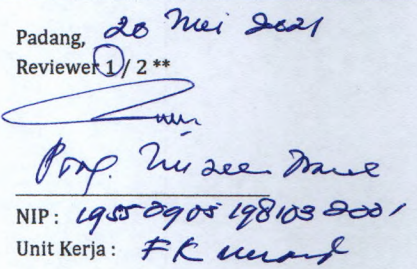 Padang, 20 Mei 2021
Reviewer 1 / 2 **
Prof.
NIP : 19550905 198103 2001
Unit Kerja : FK